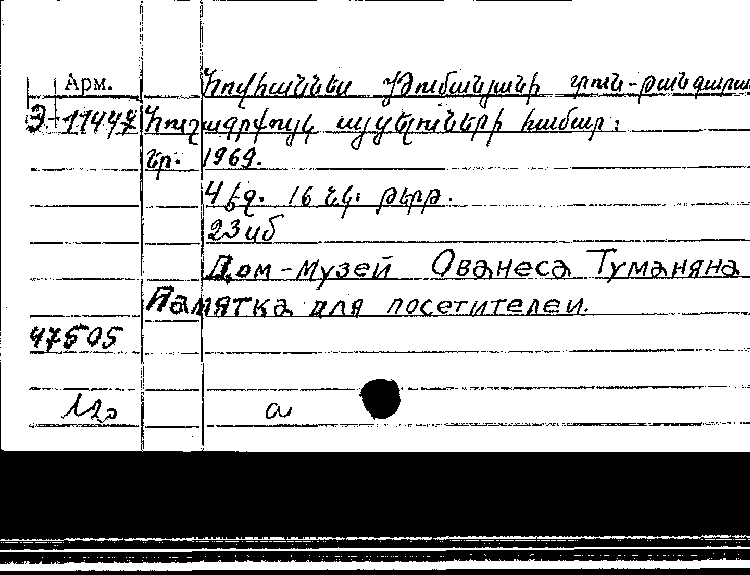 Арм. Հովհաննես Թումանյանի տուն-թանգարան
Э-11447 Հուշագրքույկ այցելուների համար:
Եր. 1969.
4 եզ. 16 նկ. թերթ.
23 սմ
Дом-музей Ованеса Туманяна
Памятка для посетителей.
47505
а